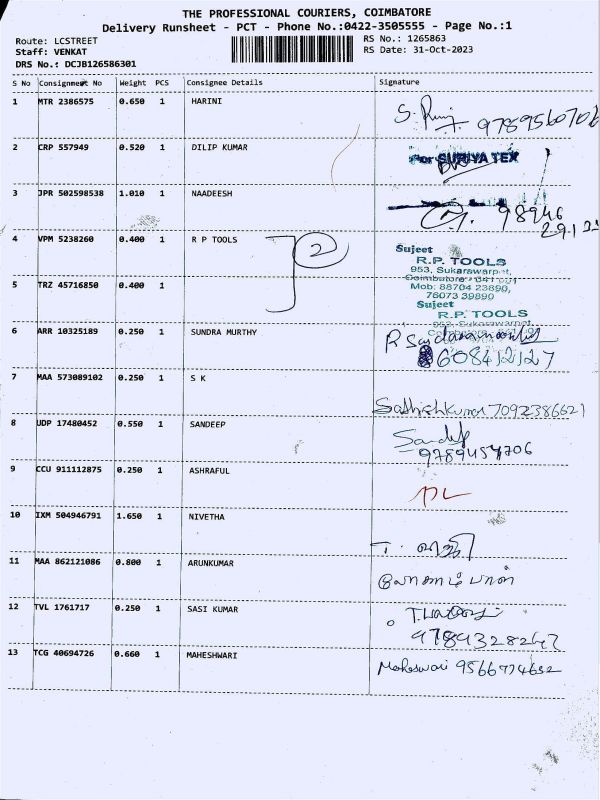 THE PROFESSIONAL COURIERS, COIMBATORE
Delivery Runsheet - PCT - Phone No.:0422-3505555 - Page No.:1
Route: LCSTREET
Staff: VENKAT
DRS No.: DCJB126586301
RS No.: 1265863
RS Date: 31-Oct-2023
S No Consignment No Weight PCS Consignee Details Signature
1 MTR 2386575 0.650 1 HARINI
2 CRP 557949 0.520 1 DILIP KUMAR
For SURIYA TEX
3 JPR 502598538 1.010 1 NAADEESH
98946
4 VPM 5238260 0.400 1 R P TOOLS
2
Sujeet
R.P. TOOLS
953, Sukarawarpet,
Coimbatore - 641 001
Mob: 88704 23890,
76073 39890
5 TRZ 45716850 0.400 1
Sujeet
R.P. TOOLS
6 ARR 10325189 0.250 1 SUNDRA MURTHY
8608412127
7 MAA 573089102 0.250 1 S K
Sathishkumar 7092386621
8 UDP 17480452 0.550 1 SANDEEP
Sandeep
9789454706
9 CCU 911112875 0.250 1 ASHRAFUL
10 IXM 504946791 1.650 1 NIVETHA
11 MAA 862121086 0.800 1 ARUNKUMAR
12 TVL 1761717 0.250 1 SASI KUMAR
13 TCG 40694726 0.660 1 MAHESHWARI
Maheswari 9566774652